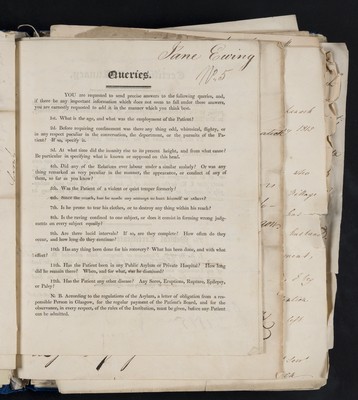 Jane Ewing
No. 5
Queries.
YOU are requested to send precise answers to the following queries, and,
if there be any important information which does not seem to fall under these answers,
you are earnestly requested to add it in the manner which you think best.
1st. What is the age, and what was the employment of the Patient?
2d. Before requiring confinement was there any thing odd, whimsical, flighty, or
in any respect peculiar in the conversation, the deportment, or the pursuits of the Pa-
tient? If so, specify it.
3d. At what time did the insanity rise to its present height, and from what cause?
Be particular in specifying what is known or supposed on this head.
4th. Did any of the Relations ever labour under a similar malady? Or was any
thing remarked as very peculiar in the manner, the appearance, or conduct of any of
them, as far as you know?
5th. Was the Patient of a violent or quiet temper formerly?
6th. Since the attack, has he made any attempt to hurt himself or others?
7th. Is he prone to tear his clothes, or to destroy any thing within his reach?
8th. Is the raving confined to one subject, or does it consist in forming wrong judg-
ments on every subject equally?
9th. Are there lucid intervals? If so, are they complete? How often do they
occur, and how long do they continue?
10th. Has any thing been done for his recovery? What has been done, and with what
effect?
11th. Has the Patient been in any Public Asylum or Private Hospital? How long
did he remain there? When, and for what, was he dismissed?
12th. Has the Patient any other disease? Any Sores, Eruptions, Rupture, Epilepsy,
or Palsy?
N. B. According to the regulations of the Asylum, a letter of obligation from a res-
ponsible Person in Glasgow, for the regular payment of the Patient's Board, and for the
observance, in every respect, of the rules of the Institution, must be given, before any Patient
can be admitted.